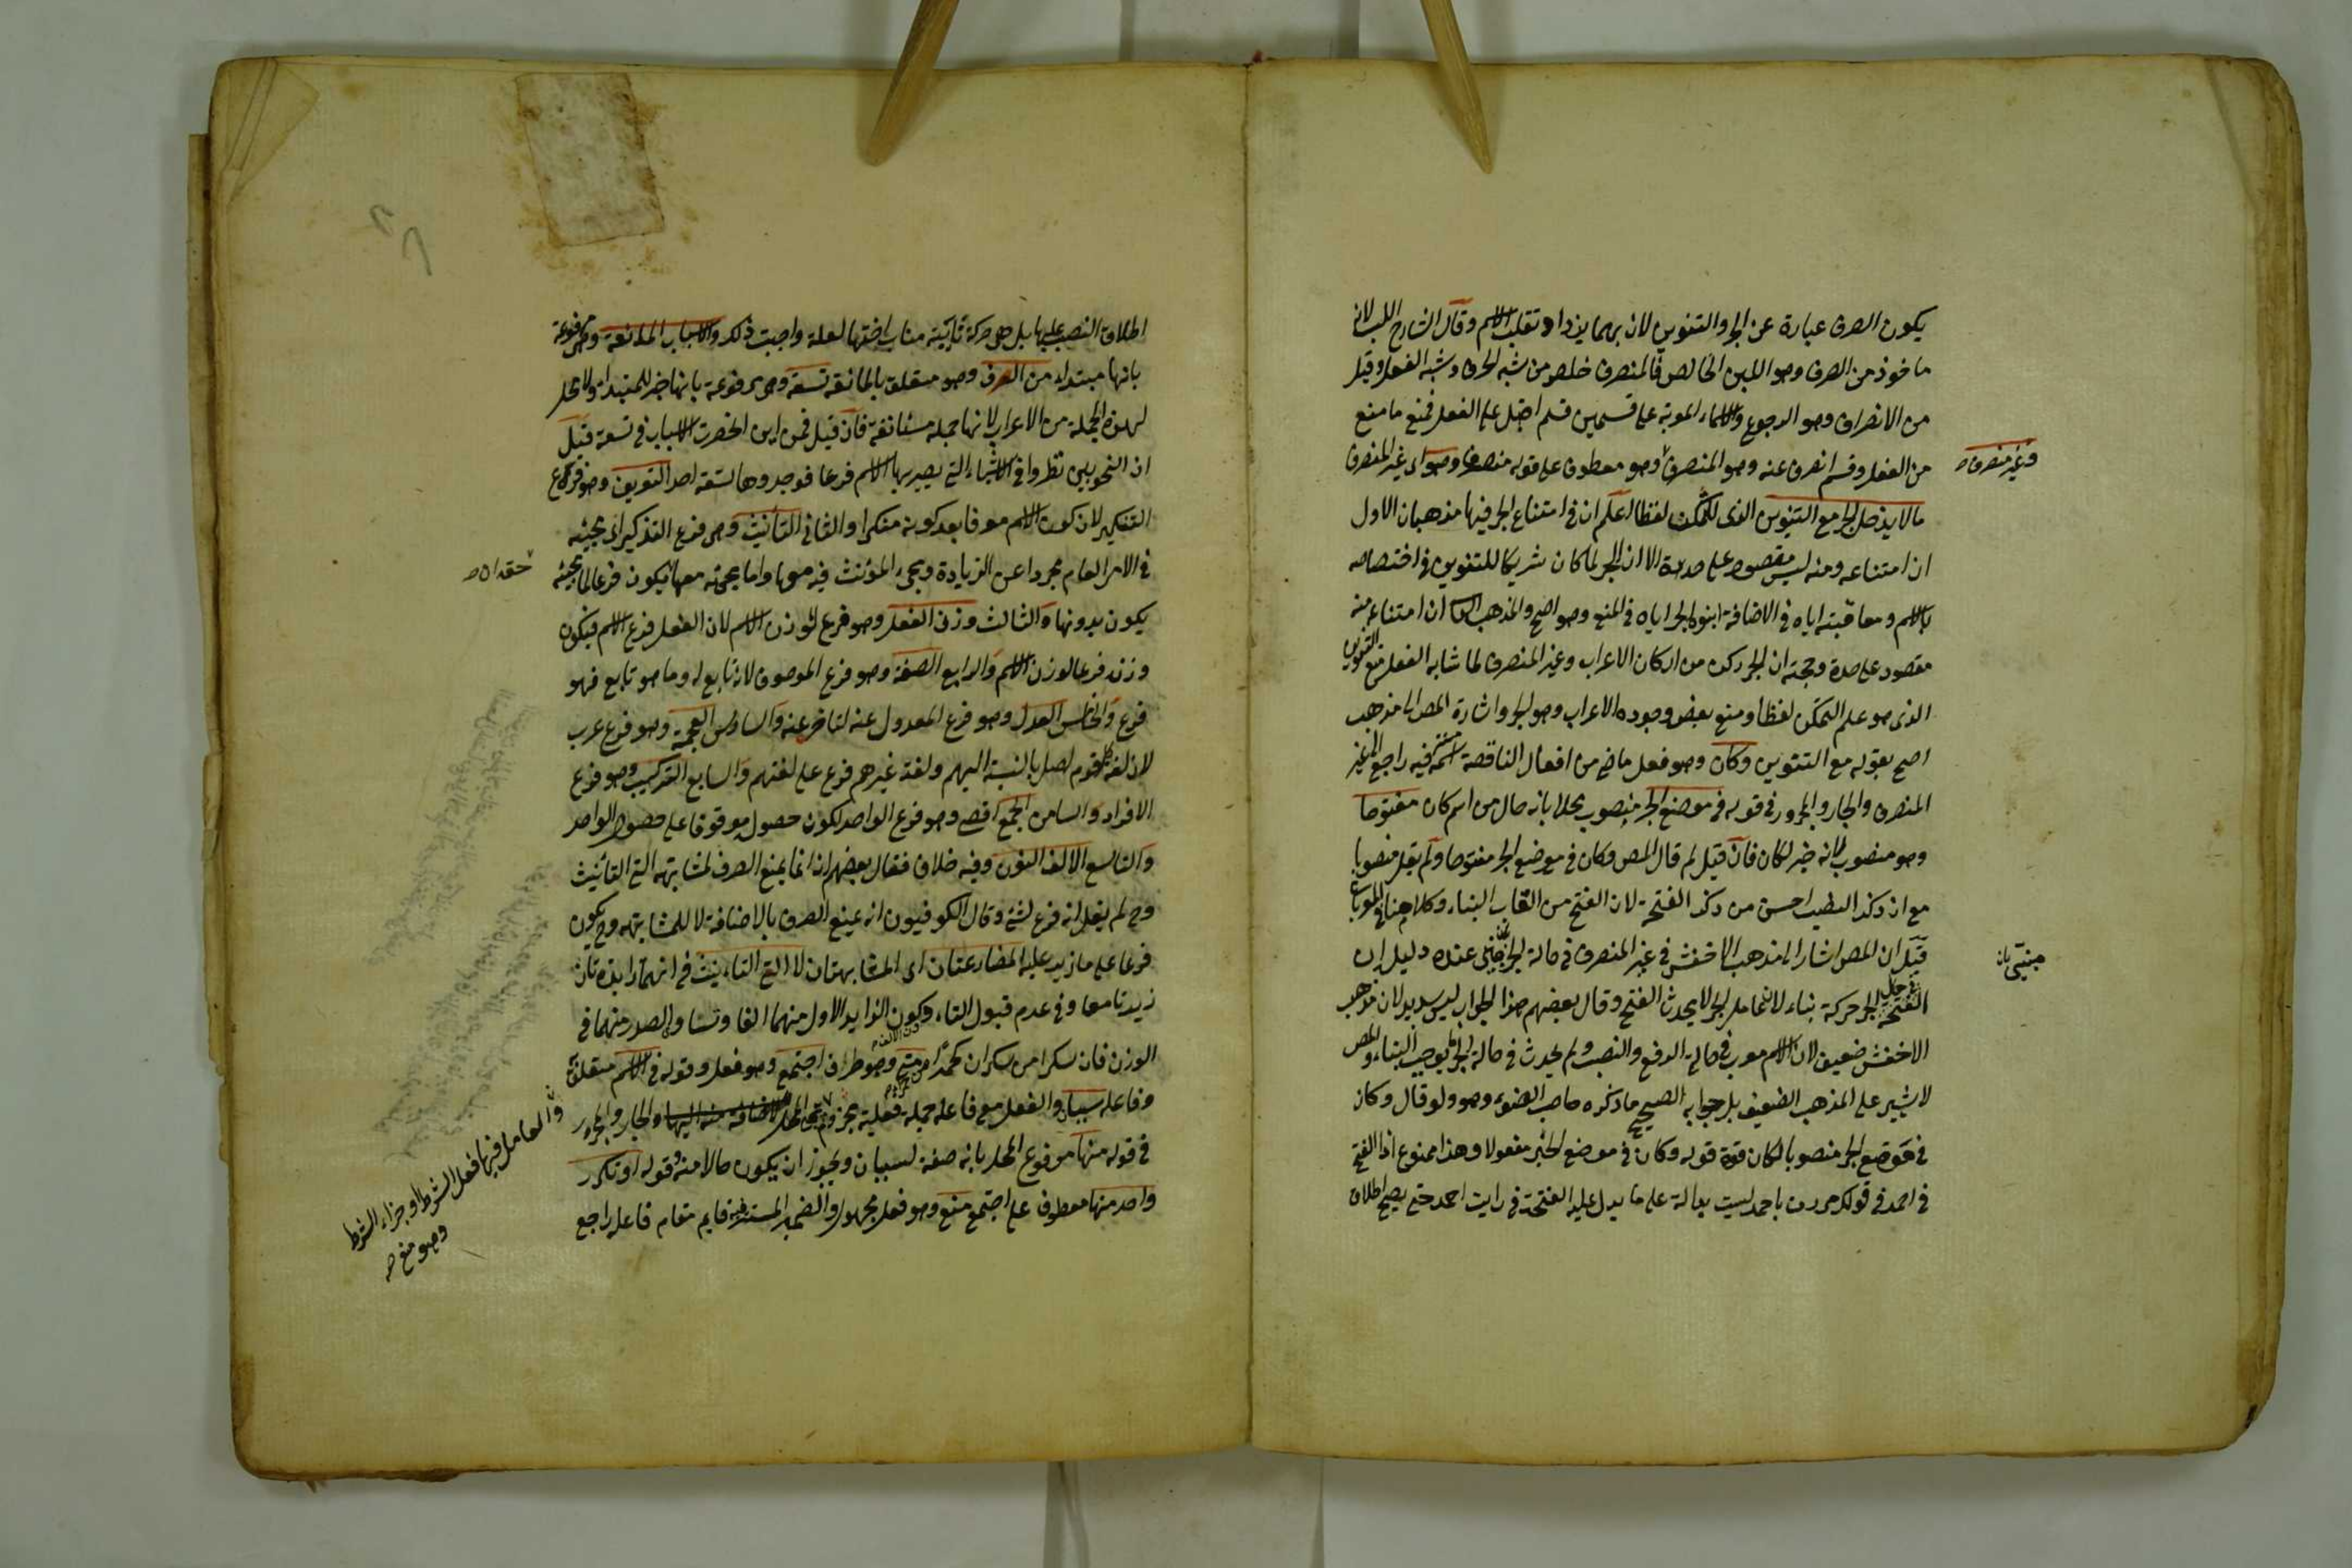 يكون الصرف عبارة عن الجر والتنوين لان بهما يزداد تقلب الاسم وقال الشارح اللب لانه
ماخوذ من الصرف وهو اللبن الخالص فالمنصرف خلص من شبه الحرف وشبه الفعل وقيل
من الانصراف وهو الرجوع والاسماء المعربة على قسمين قسم اقبل على الفعل فمنع ما منع
من الفعل وقسم انصرف عنه وهو المنصرف وهو معطوف على قوله منصرف وهو اى غير المنصرف
وغير منصرف صح
مالا يدخل الجر مع التنوين الذى للتمكن لفظا اعلم ان فى امتناع الجر فيها مذهبان الاول
ان امتناعه ومنه ليس مقصود على حدة الا ان الجر لما كان شريكا للتنوين فى اختصاصه
بالاسم ومعاقبته اياه فى الاضافة الجر اياه فى المنع وهو اصح والمذهب ان امتناع منه
مقصود على حدة وحجته ان الجر ركن من اركان الاعراب وغير المنصرف لما شابه الفعل منع التنوين
الذى هو علم التمكن لفظا ومنع بعض وجوده الاعراب وهو الجر واشارة المص الى مذهب
اصح بقوله مع التنوين وكان وهو فعل ماض من افعال الناقصة اسمه فيه راجع الى غير
المنصرف والجار والمجرور فى قوله فى موضع الجر منصوب محلا بانه حال من اسم كان مفتوحا
وهو منصوب لانه خبر لكان فان قيل لم قال المص وكان فى موضع الجر مفتوحا ولم يقل منصوبا
مع ان ذكر النصب احسن من ذكر الفتحة لان الفتح من القاب البناء وكلامنا فى المعرب
قيل ان المص اشار الى مذهب الاخفش فى غير المنصرف فى حالة الجر عنده دليل ان
مبنى بان
الفتحة فى حال الجر حركة بناء لان عامل الجر لا يحدث الفتح وقال بعضهم هذا الجواب ليس بسديد لان مذهب
الاخفش ضعيف لان الاسم معرب فى حالة الرفع والنصب ولم يحدث فى حالة الجر ما يوجب البناء والمص
لا يشير على المذهب الضعيف بل جوابه الصحيح ما ذكره صاحب الضوء وهو ولو قال وكان
فى موضع الجر منصوبا لكان قوة قوله وكان فى موضع الخبر مفعولا وهذا ممنوع اذ الفتح
فى احمد فى قولك مررت باحمد ليست بدالة على ما يدل عليه الفتحة فى رايت احمد حتى يصح اطلاق
اطلاق النصب عليها بل هى حركة نابت مناب اختها لعلة واجبت ذلك والاسباب المانعة وهى مرفوعة
بانها مبتداء من الصرف وهو متعلق بالمانعة تسعة وهى مرفوعة بانها خبر للمبتداء ولا محل
لهذه الجملة من الاعراب لانها جملة مستانفة فان قيل فمن اين انحصرت الاسباب فى تسعة قيل
ان النحويين نظروا فى الاشياء التى يصير بها الاسم فرعا فوجدوها تسعة احد التعريف وهو فرع
التنكير لان كون الاسم معرفا بعد كونه منكرا والثانى التأنيث وهى فرع التذكير اى مجيئه
فى الامر العام مجردا عن الزيادة ويجىء المؤنث فيه معها واما يجىء معها فيكون فرعا لما يجىء
حقه ان صح
يكون بدونها والثالث وزن الفعل وهو فرع لوزن الاسم لان الفعل فرع الاسم فيكون
وزنه فرعا لوزن الاسم والرابع الصفة وهو فرع الموصوف لانه تابع له وما هو تابع فهو
فرع والخامس العدل وهو فرع المعدول عنه لتاخره عنه والسادس العجمة وهو فرع عرب
لان لغة كل قوم اصل بالنسبة اليهم ولغة غيرهم فرع على لغتهم والسابع التركيب وهو فرع
الافراد والثامن الجمع اقصى وهو فرع الواحد لكون حصوله موقوفا على حصول الواحد
والتاسع الالف النون وفيه خلاف فقال بعضهم انه انما يمنع الصرف لمشابهته التى التأنيث
وح لم يقل انه فرع لشئ وقال الكوفيون انه يمنع الصرف بالاضافة لا للمشابهة وح يكون
فرعا على ما زيد عليه المضارعتان اى المشابهتان لا الفى التانيث فى انهما زائدتان
زيدتا معا وفى عدم قبول التاء وكون الزايد الاول منهما الفا وتساو الصدر منهما فى
الوزن فان سكرا من سكران كحمرا من حمراء متى وهو ظرف اجتمع وهو فعل وقوله فى الاسم متعلق
وفاعله سببان والفعل مع فاعله جملة فعلية مجزوم المحل والجار والمجرور
فى قوله منها مرفوع المحل بانه صفة لسببان ويجوز ان يكون حالا منه وقوله او تكرر
واحد منها معطوف على اجتمع منع وهو فعل مجهول والضمير المستتر فيه قايم مقام فاعله راجع
والعامل فيها فعل الشرط او جزاء الشرط
وهو منع صح